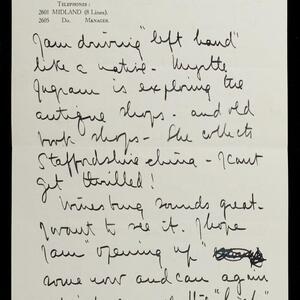 TELEPHONES:
2601 MIDLAND (8 Lines).
2605 Do. MANAGER.
I am driving "left hand"
like a native. Myrtle
Ingram is exploring the
antique shops - and old
book shops - She collects
Staffordshire china - I can't
get thrilled!
Winesburg sounds great -
I want to see it. I hope
I am "opening up"
some now and can again